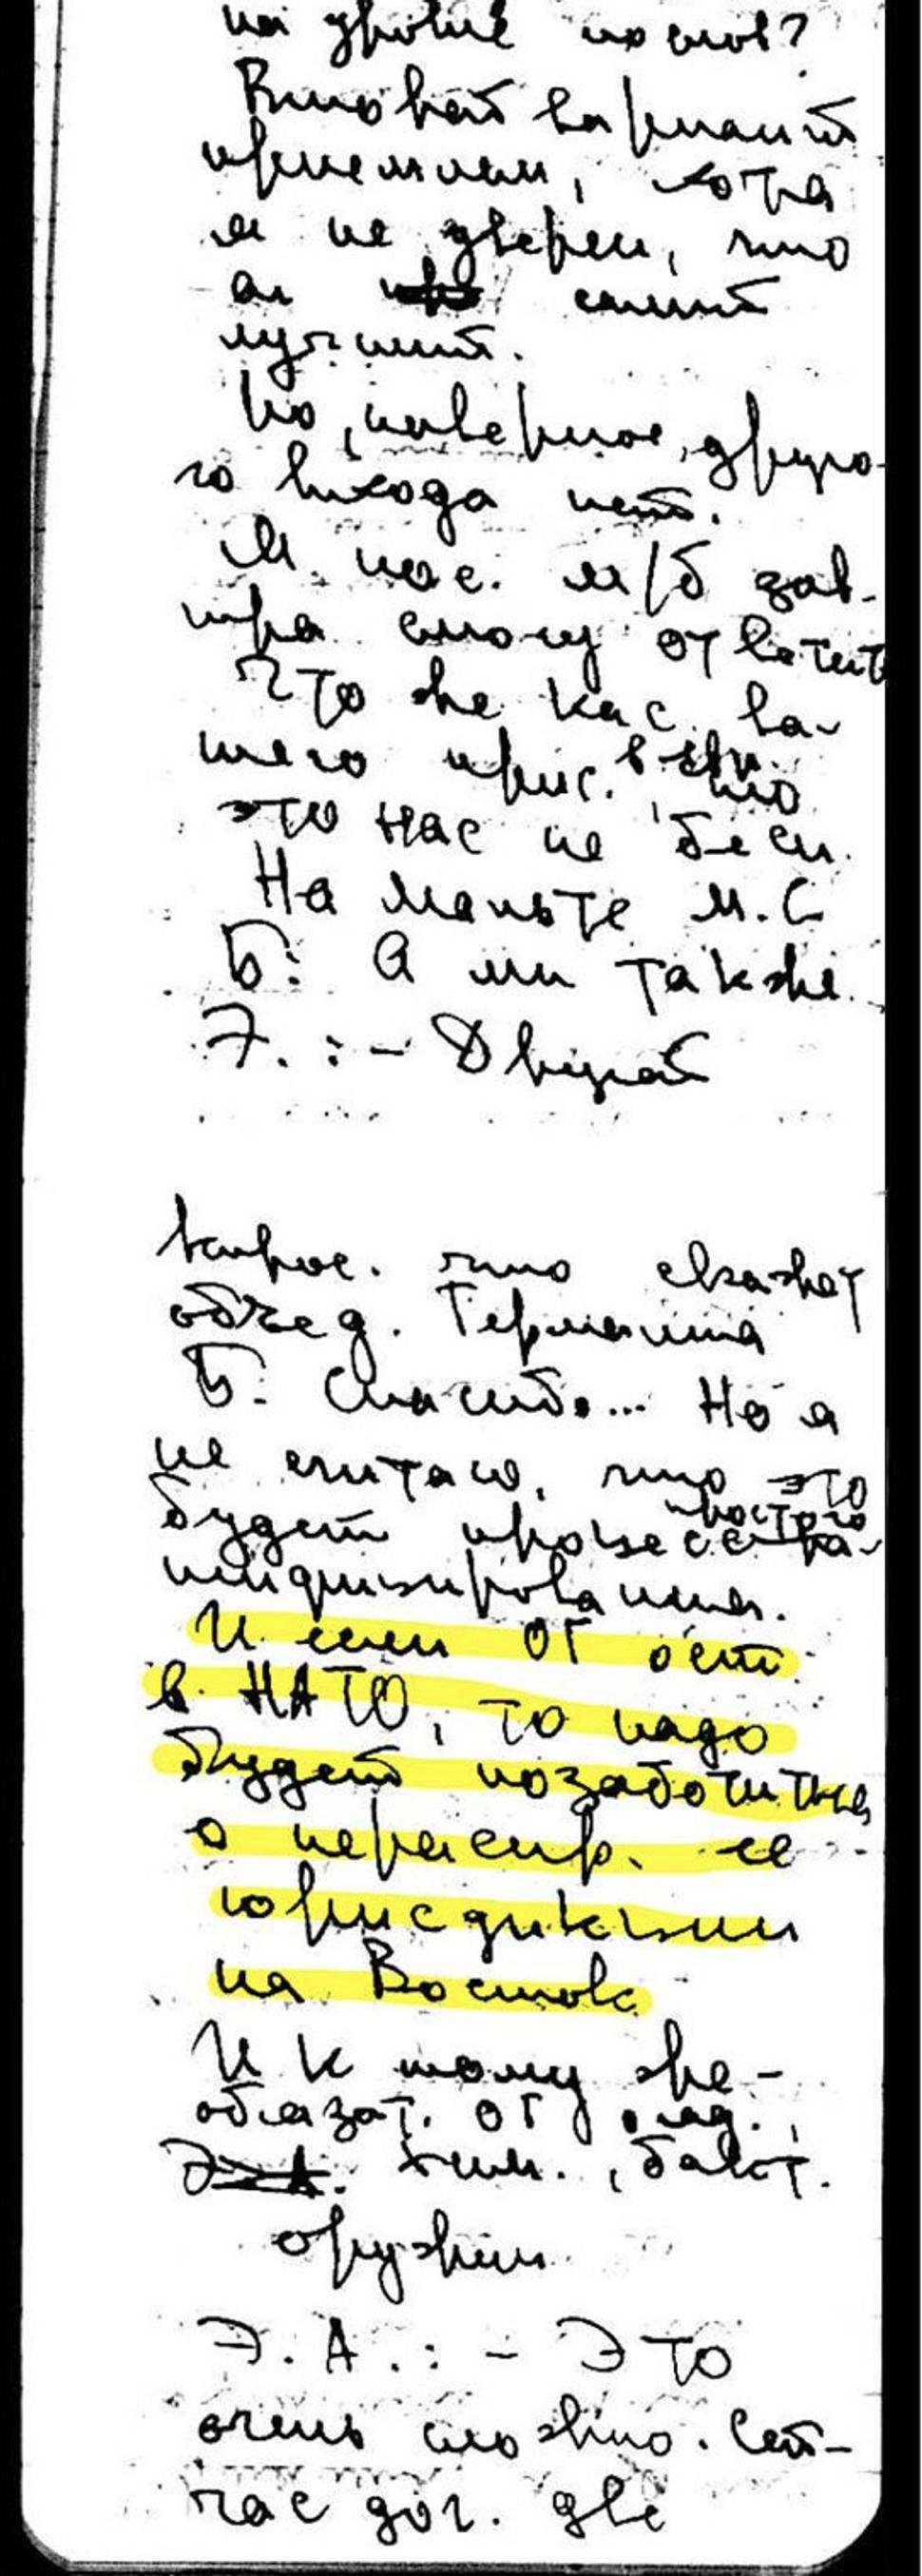 на уровне послов?
Второй вариант
приемлем, хотя
я не уверен, что
он самый
лучший.
Но, наверное, друго-
го выхода нет.
И пос. м/б зав-
тра смогу ответить
Что же кас. ва-
шего прис. в Евр., то
это нас не бесп.
На Мальте М.С
Б: А мы также.
Э. : – Другой
вопрос. что скажет
объед. Германия
Б. Спасибо... Но я
не считаю, что это
будет процесс простого
ратифицирования.
И если ОГ ост
в НАТО, то надо
будет позаботиться
о нераспр. ее
юрисдикции
на Восток
И к тому же –
обязат. ОГ яд.,
хим., бакт.
оружии
Э. А. : – Это
очень сложно. Сей-
час дог. две